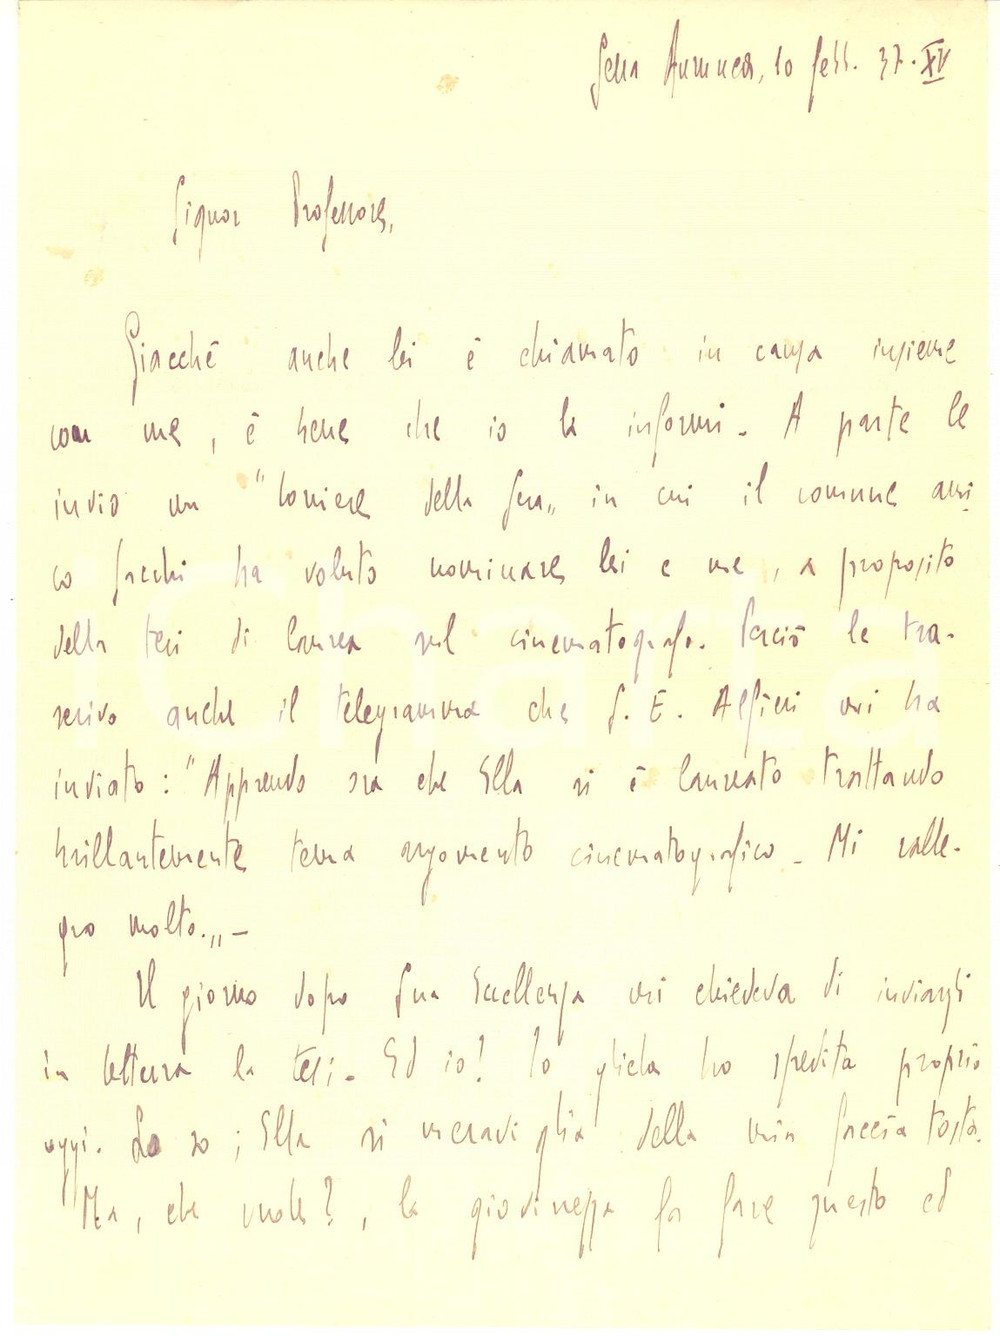 Sessa Aurunca, 10 febb. 37. XV
Signor Professore,
Giacché anche lei è chiamato in causa insieme
con me, è bene che io la informi. A parte le
invio un "Corriere della Sera„ in cui il comune ami-
co Sacchi ha voluto nominare lei e me, a proposito
della tesi di laurea sul cinematografo. Perciò le tra-
scrivo anche il telegramma che S. E. Alfieri mi ha
inviato: "Apprendo ora che Ella si è laureato trattando
brillantemente tema argomento cinematografico - Mi ralle-
gro molto.„ -
Il giorno dopo Sua Eccellenza mi chiedeva di inviargli
in lettura la tesi. Ed io! Io gliela ho spedita proprio
oggi. Lo so; Ella si meraviglia della mia faccia tosta.
Ma, che vuole?, la giovinezza fa fare questo ed
iCharta